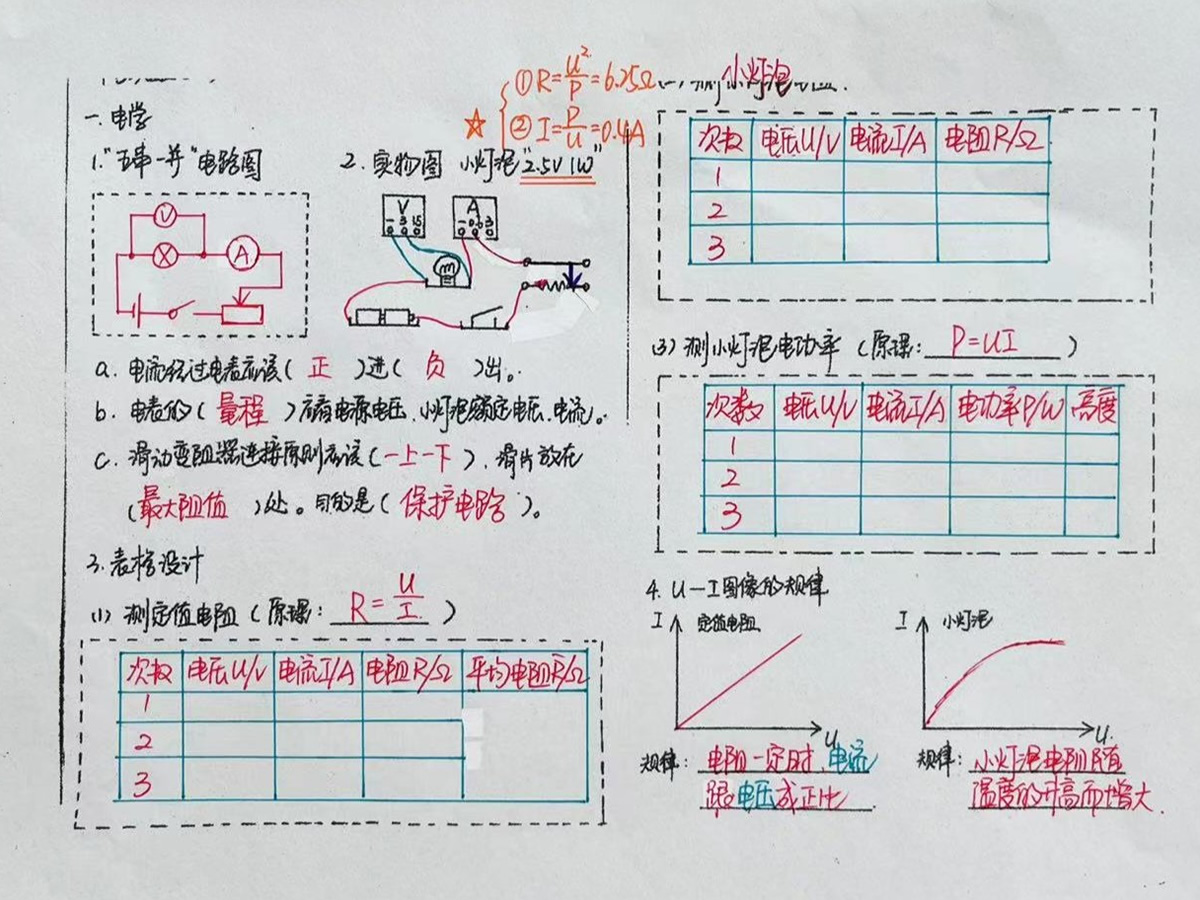 一、电学
1."五串一并"电路图
V
A
2.实物图 小灯泡"2.5V 1W"
☆
①R=U²/P=6.25Ω
②I=P/U=0.4A
V
- 3 15
A
- 0.6 3
a.电流经过电表应该(正)进(负)出。
b.电表的(量程)应看电源电压、小灯泡额定电压、电流。
c.滑动变阻器连接原则应该(一上一下),滑片放在
(最大阻值)处。目的是(保护电路)。
3.表格设计
(1)测定值电阻(原理:R=U/I)
次数 电压U/V 电流I/A 电阻R/Ω 平均电阻R/Ω
1
2
3
小灯泡
次数 电压U/V 电流I/A 电阻R/Ω
1
2
3
(3)测小灯泡电功率(原理:P=UI)
次数 电压U/V 电流I/A 电功率P/W 亮度
1
2
3
4.U-I图像的规律
I 定值电阻
U
规律:电阻一定时、电流
跟电压成正比
I 小灯泡
U
规律:小灯泡电阻随
温度的升高而增大.